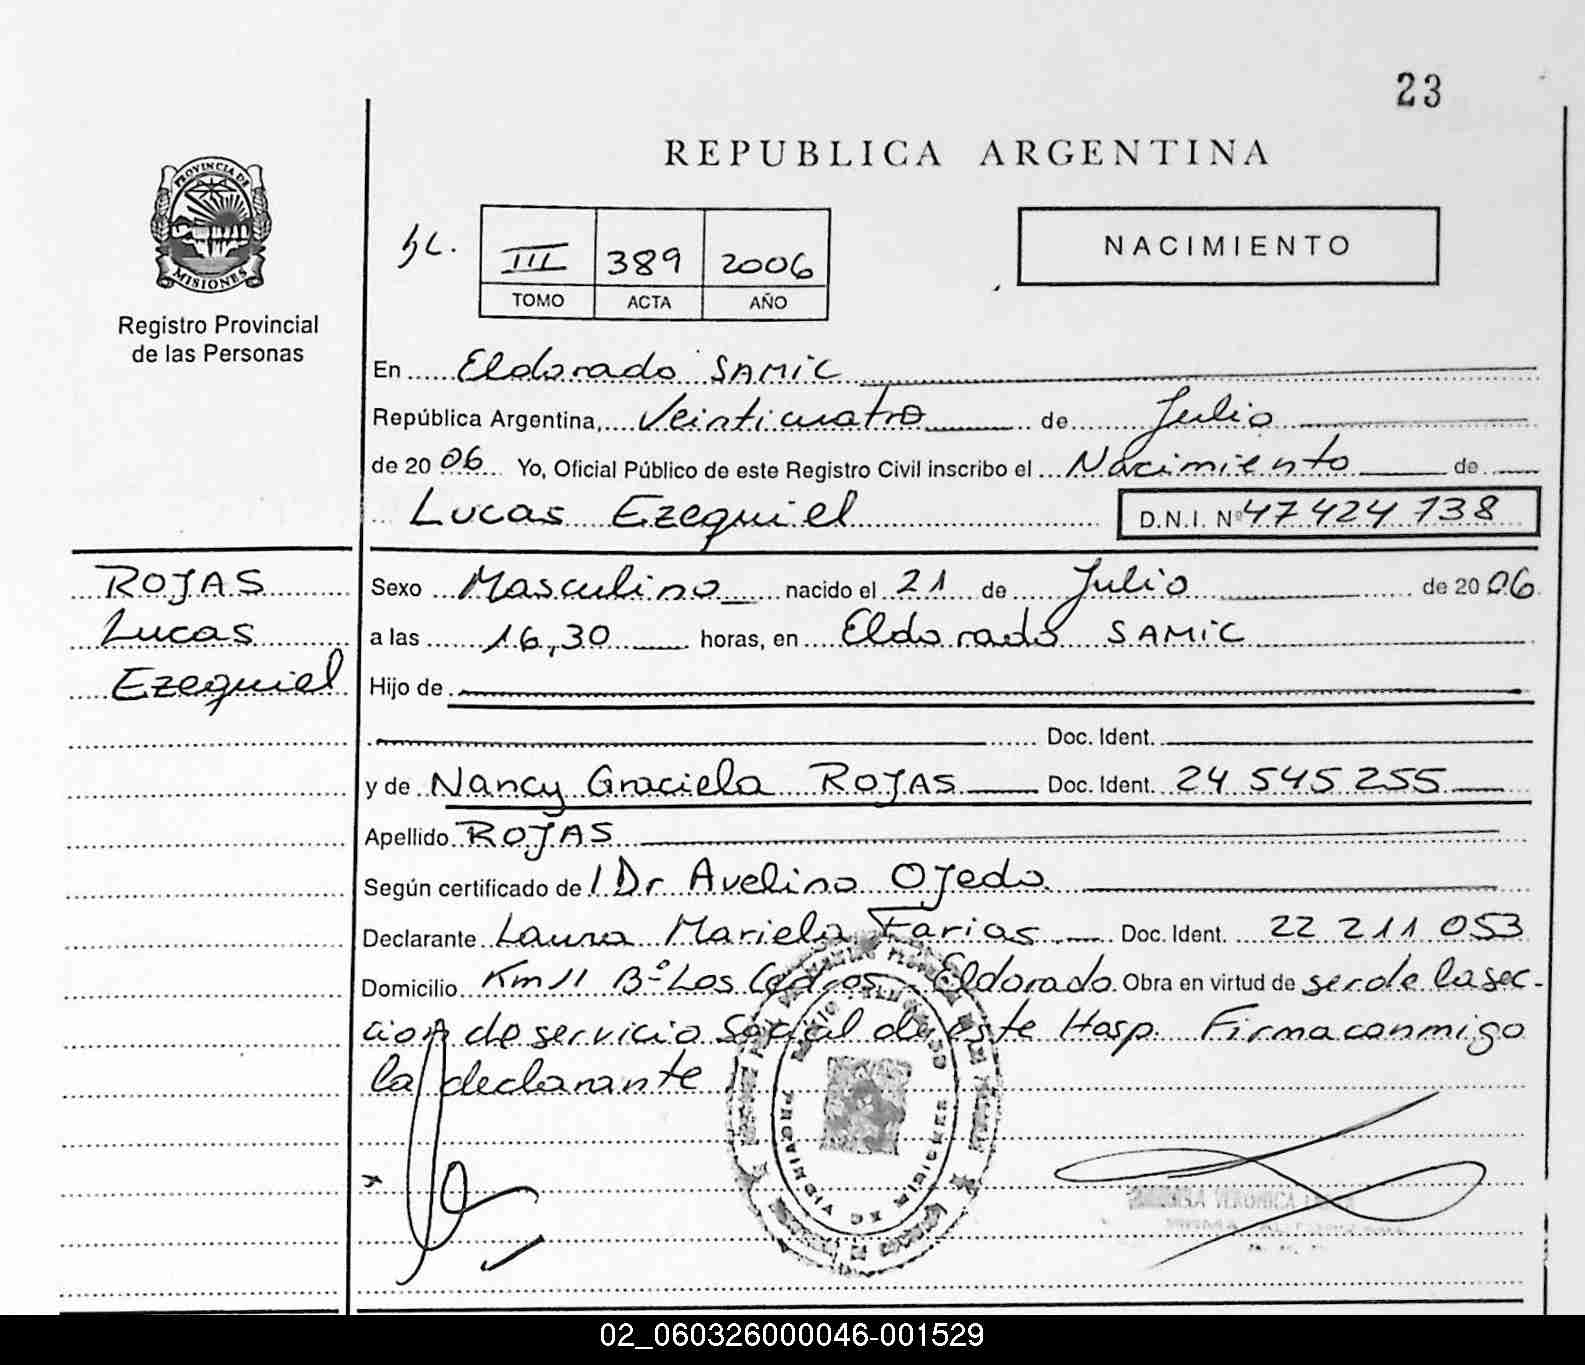 23
REPUBLICA ARGENTINA
PROVINCIA DE
MISIONES
Registro Provincial
de las Personas
III 389 2006
TOMO ACTA AÑO
NACIMIENTO
En Eldorado SAMIC
República Argentina, Veinticuatro de Julio
de 2006 Yo, Oficial Público de este Registro Civil inscribo el Nacimiento de
Lucas Ezequiel D.N.I. Nº 47424738
ROJAS
Lucas
Ezequiel
Sexo Masculino nacido el 21 de Julio de 2006
a las 16,30 horas, en Eldorado SAMIC
Hijo de
Doc. Ident.
y de Nancy Graciela ROJAS Doc. Ident. 24 545 255
Apellido ROJAS
Según certificado de Dr Avelino Ojeda
Declarante Laura Mariela Farias Doc. Ident. 22 211 053
Domicilio Km 11 Bº Los Cedros Eldorado Obra en virtud de ser de la sec-
cion de servicio Social de este Hosp. Firma conmigo
la declarante
VERONICA
02_060326000046-001529